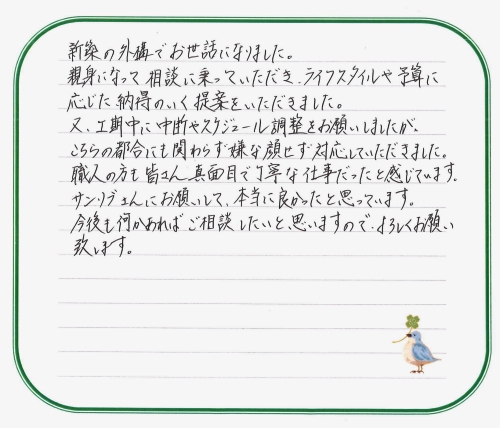 新築の外構でお世話になりました。
親身になって相談に乗っていただき、ライフスタイルや予算に
応じた納得のいく提案をいただきました。
又、工期中に中断やスケジュール調整をお願いしましたが、
こちらの都合にも関わらず嫌な顔せず対応していただきました。
職人の方も皆さん真面目で丁寧な仕事だったと感じています。
サンリブさんにお願いして、本当に良かったと思っています。
今後も何かあればご相談したいと思いますので、よろしくお願い
致します。